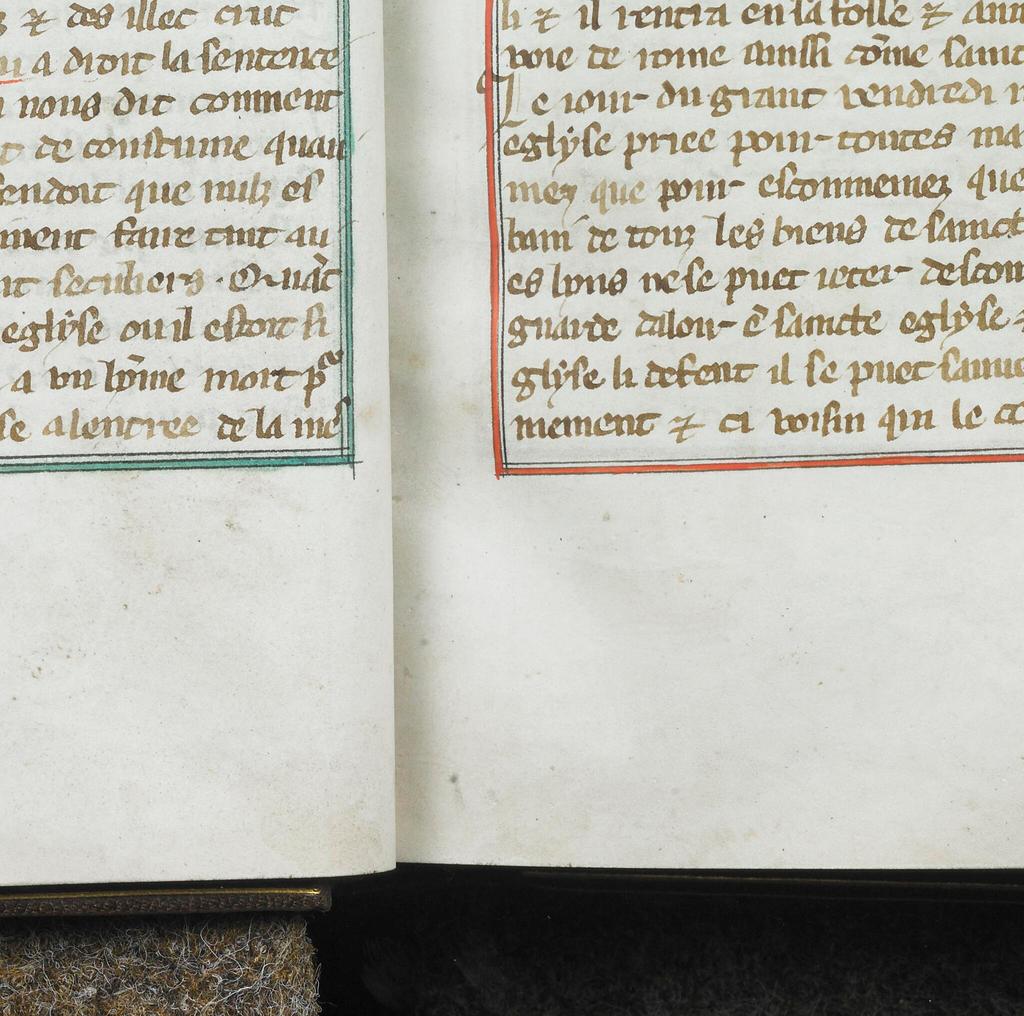 & des illec crut
a droit la sentence
nous dit comment
de coustume quan
fendoit que nulz es
ment faire tout au
seculiers · Quāt
eglyse ou il estoit si
a un hōme mort
se a lentree de la me
li & il rentra en la fosse &
voie de rome aussi cōme saint
Le iour du grant vendredi
eglyse priee pour toutes ma
mez que pour escommeniez que
bani de touz les biens de sainct
es lyens ne se puet ieter descom
guarde dalour ē saincte eglyse
glyse li defent il se puet
mement & ci voisin qui le co